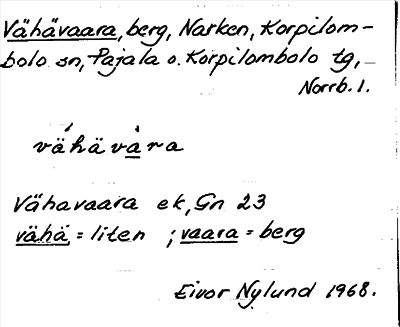 Vähävaara, berg, Narken, Korpilom-
bolo sn, Pajala o. Korpilombolo tg,
Norrb. l.
vä́hävàra
Vähavaara ek, Gn 23
vähä = liten ; vaara = berg
Eivor Nylund 1968.